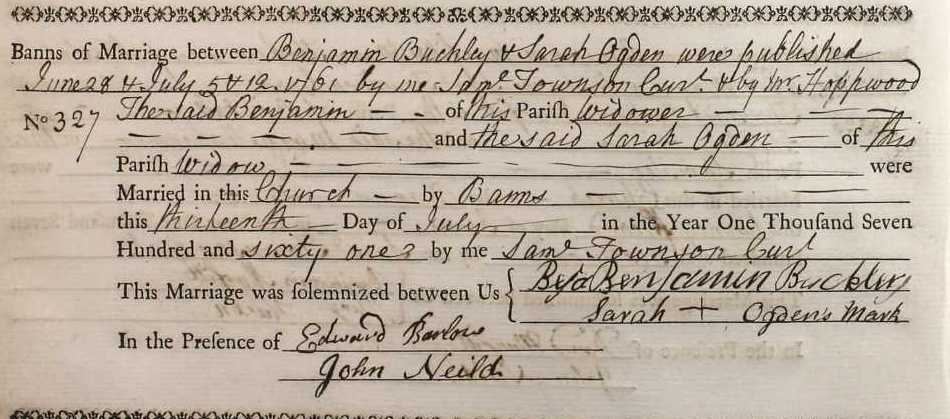 Banns of Marriage between Benjamin Buckley & Sarah Ogden were published
June 28 & July 5 & 12. 1761 by me Saml. Townson Curt. & by Mr. Hoppwood
No 327 The Said Benjamin — - of this Pariſh Widower — — —
— — — — — and the said Sarah Ogden — of this
Pariſh Widow — — — — — — were
Married in this Church — by Banns — — — —
this thirteenth — Day of July — in the Year One Thouſand Seven
Hundred and sixty one by me Saml. Townson Curt
This Marriage was ſolemnized between Us { Benjamin Buckley
Sarah + Ogden's Mark
In the Preſence of Edward Barlow
John Neild